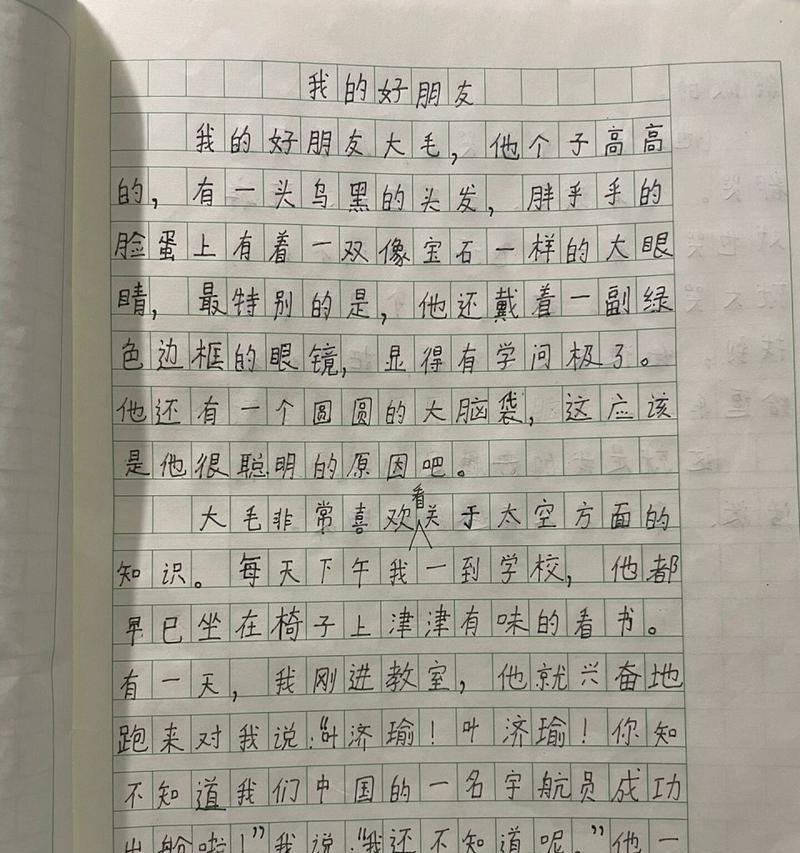 我的好朋友
我的好朋友大毛，他个子高高
的，有一头乌黑的头发，胖乎乎的
脸蛋上有着一双像宝石一样的大眼
睛，最特别的是，他还戴着一副绿
色边框的眼镜，显得有学问极了。
他还有一个圆圆的大脑袋，这应该
是他很聪明的原因吧。
大毛非常喜欢看关于太空方面的
知识。每天下午我一到学校，他都
早已坐在椅子上津津有味的看书。
有一天，我刚进教室，他就兴奋地
跑来对我说：“叶济瑜！叶济瑜！你知
不知道我们中国的一名宇航员成功
出舱啦！”我说：“我还不知道呢。”他一